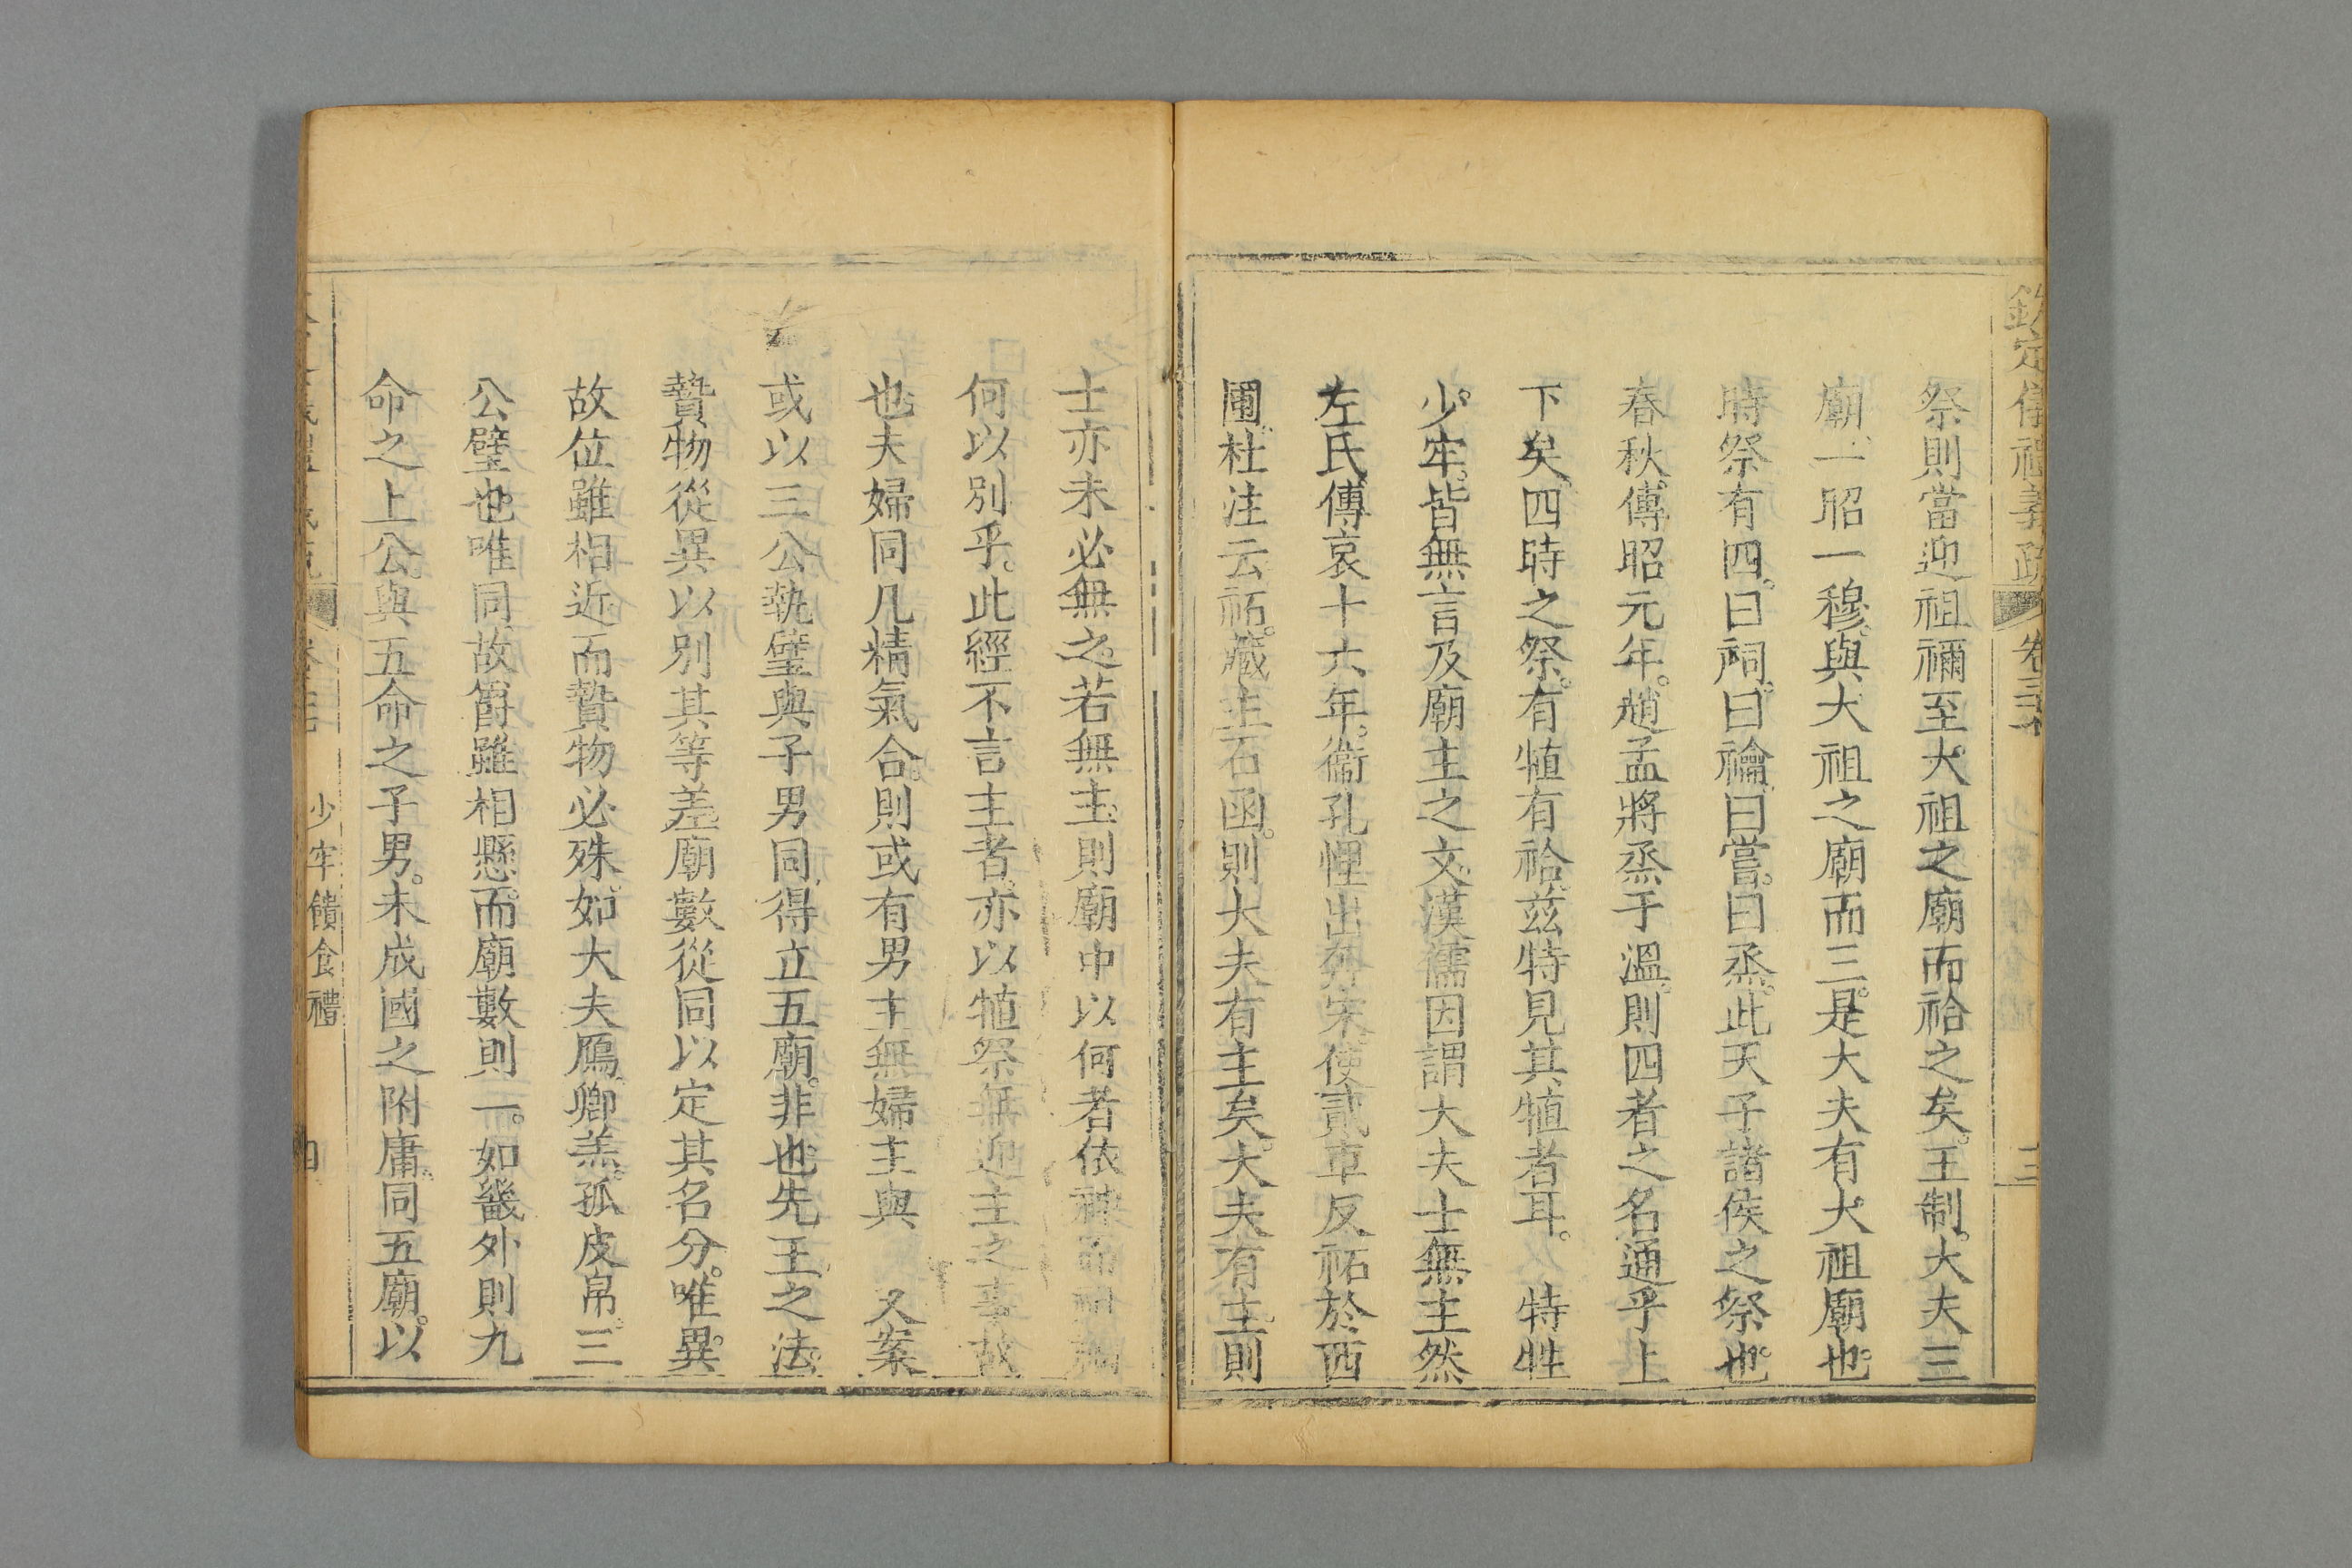 欽定儀禮義疏 卷三十七 三
祭則當迎祖禰至大祖之廟而祫之矣。王制。大夫三
廟。一昭一穆。與大祖之廟而三。是大夫有大祖廟也。
時祭有四。曰祠。曰禴。曰嘗。曰烝。此天子諸侯之祭也。
春秋傳昭元年。趙孟將烝于溫。則四者之名通乎上
下矣。四時之祭。有犆有祫。茲特見其犆者耳。 特牲
少牢。皆無言及廟主之文。漢儒因謂大夫士無主。然
左氏傳哀十六年。衞孔悝出奔宋。使貳車反祏於西
圃。杜注云。祏。藏主石函。則大夫有主矣。大夫有主。則
士亦未必無之。若無主。則廟中以何者依神而
何以別乎。此經不言主者。亦以犆祭無迎主之事故
也。夫婦同几精氣合。則或有男主無婦主與 又案
或以三公執璧與子男同。得立五廟。非也。先王之法。
贄物從異以別其等差。廟數從同以定其名分。唯異。
故位雖相近而贄物必殊。如大夫鴈。卿羔。孤皮帛。三
公璧也。唯同。故爵雖相懸。而廟數則一。如畿外則九
命之上公。與五命之子男。未成國之附庸。同五廟。以
少牢饋食禮 四